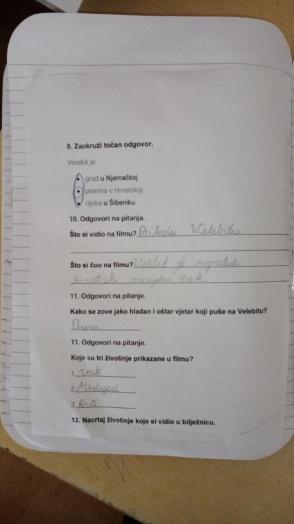 9. Zaokruži točan odgovor.
Velebit je:
grad u Njemačkoj
planina u Hrvatskoj
rijeka u Šibeniku
10. Odgovori na pitanja.
Što si vidio na filmu? Velebitu
Što si čuo na filmu? Velebit je
11. Odgovori na pitanje.
Kako se zove jako hladan i oštar vjetar koji puše na Velebitu?
Bura
11. Odgovori na pitanje.
Koje su tri životinje prikazane u filmu?
1. vuk
2. Medvjed
3. Ris
12. Nacrtaj životinje koje si vidio u bilježnicu.